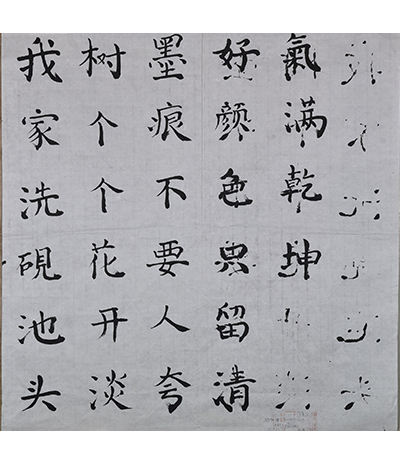 我家洗硯池头
树个个花开淡
墨痕不要人夸
好颜色只留清
氣满乾坤